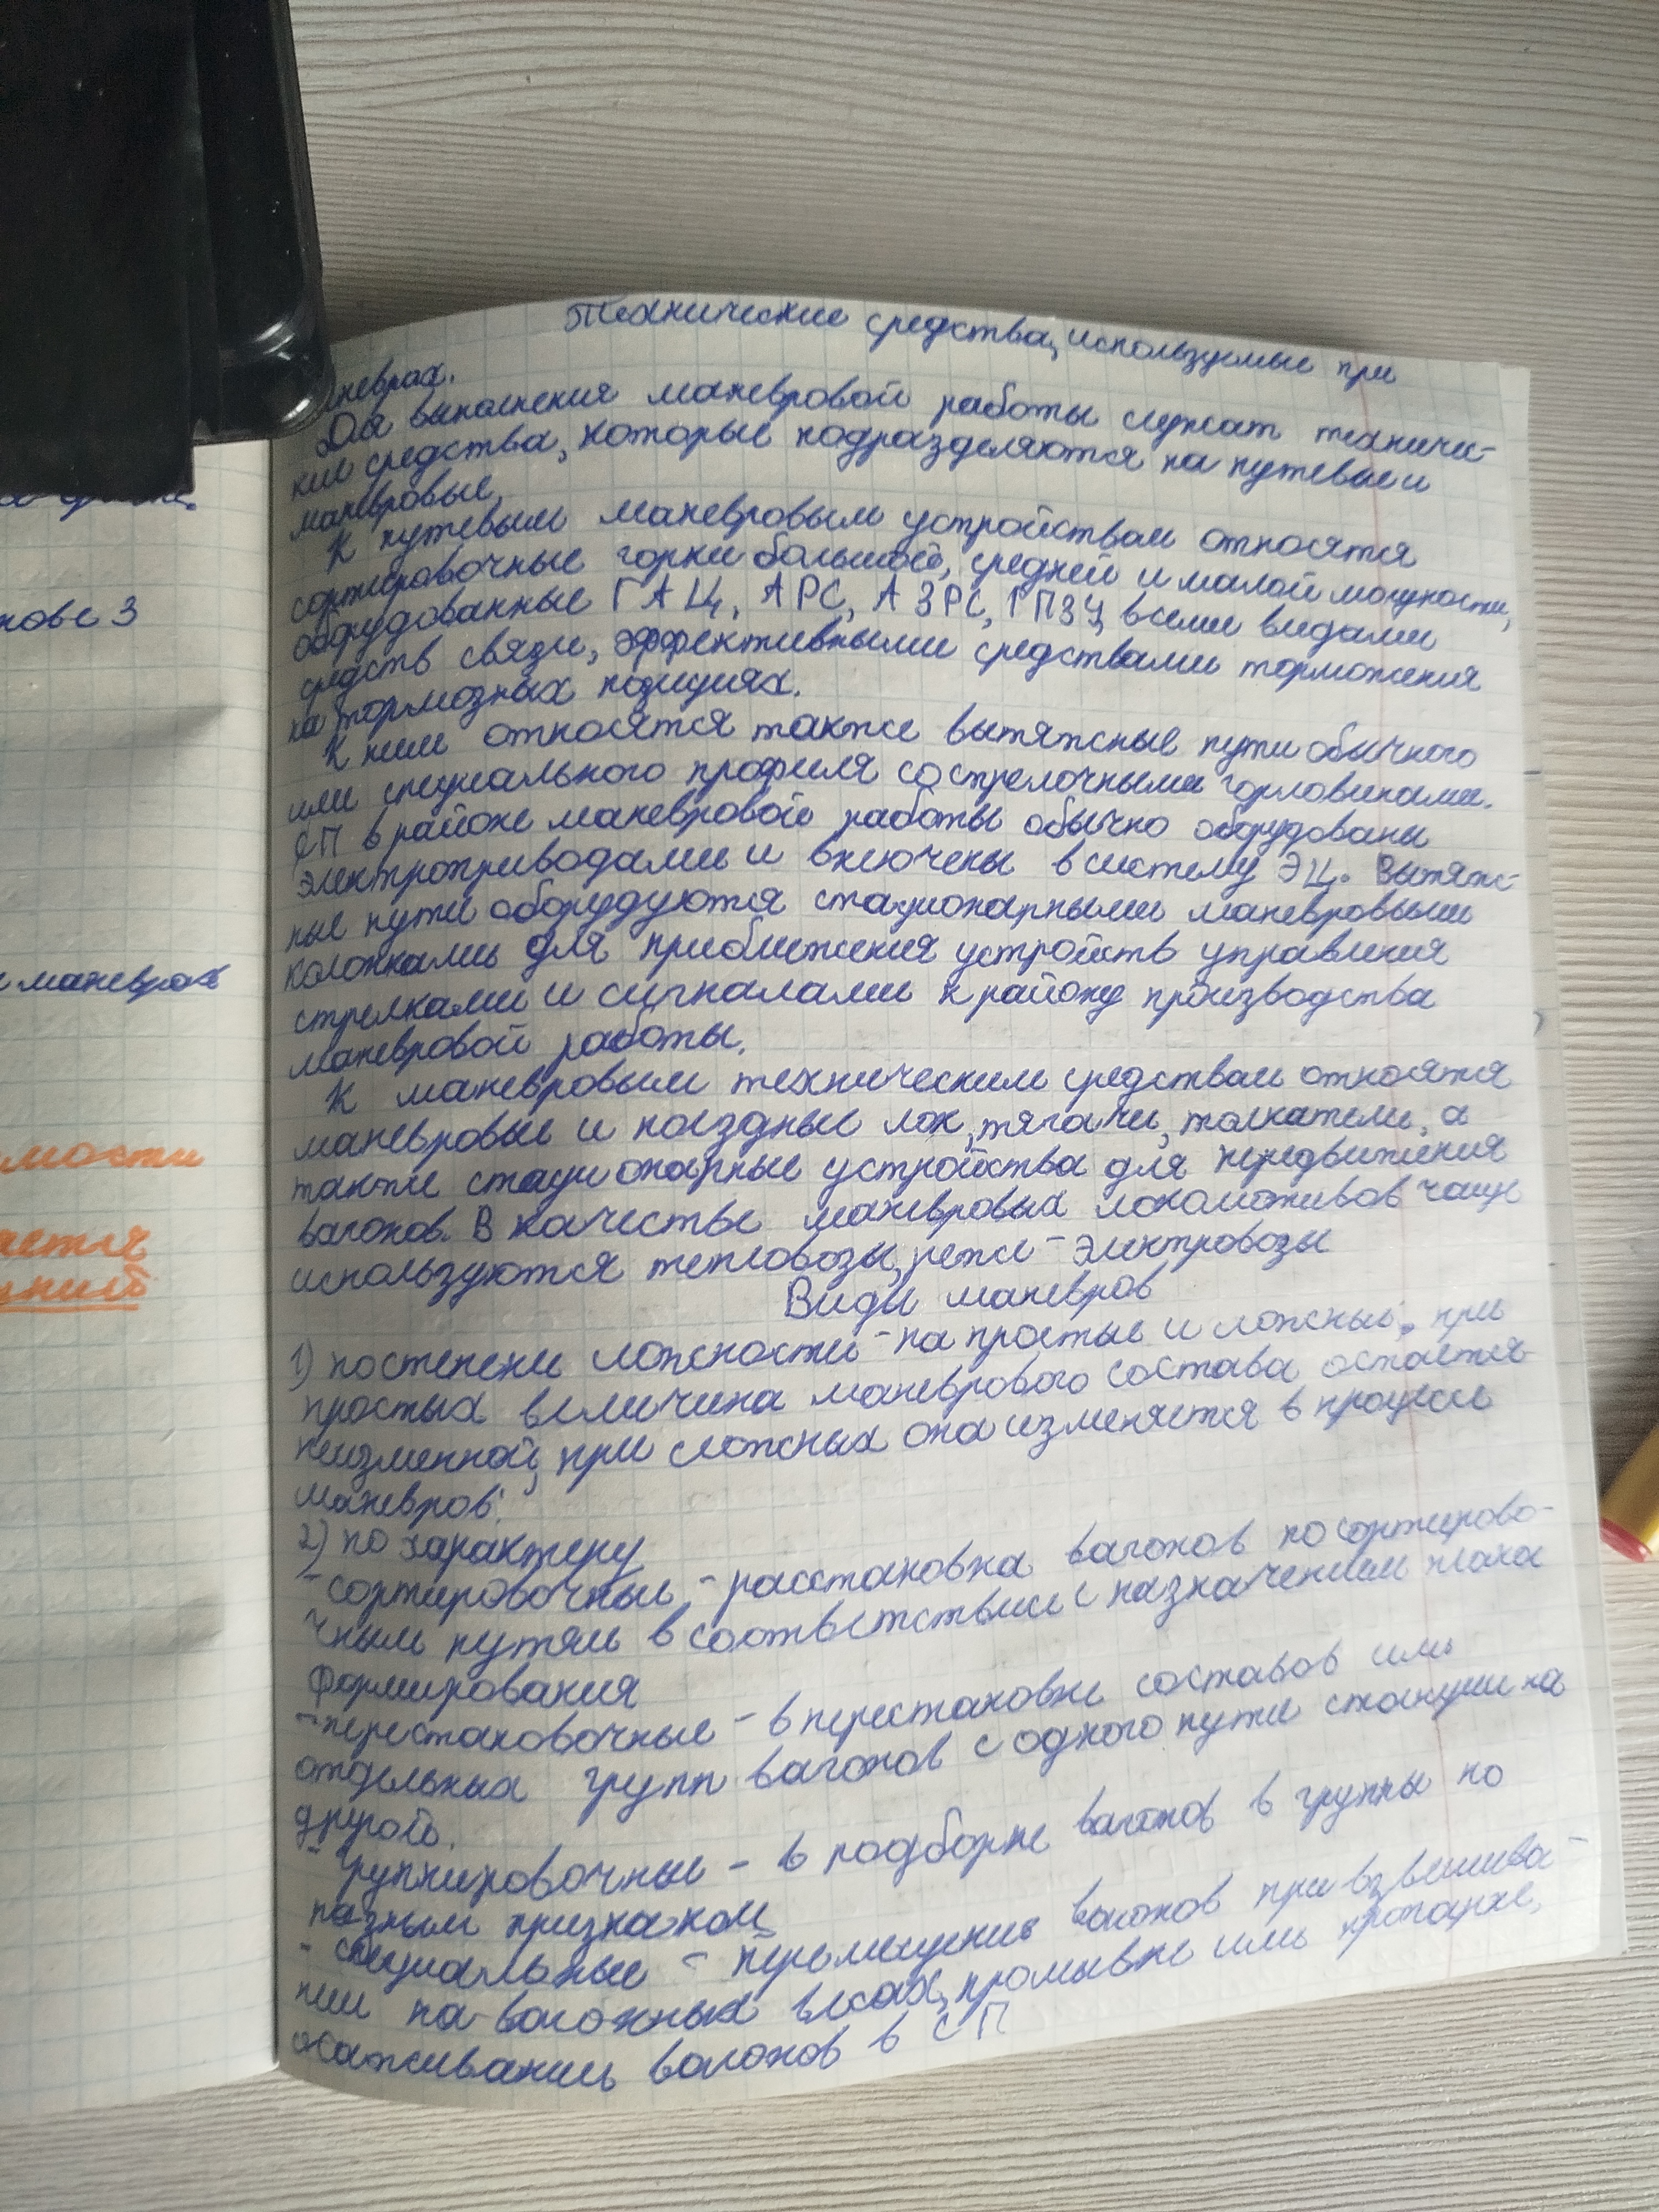 нове 3
маневрах
мости
ается
Технические средства, используемые при
маневрах.
Для выполнения маневровой работы служат техничес-
кие средства, которые подразделяются на путевые и
маневровые.
К путевым маневровым устройствам относятся
сортировочные горки большой, средней и малой мощности,
оборудованные ГАЦ, АРС, АЗРС, ГПЗУ, всеми видами
средств связи, эффективными средствами торможения
на тормозных позициях.
К ним относятся также вытяжные пути обычного
или специального профиля со стрелочными горловинами.
СП в районе маневровой работы обычно оборудованы
электроприводами и включены в систему ЭЦ. Вытяж-
ные пути оборудуются стационарными маневровыми
колонками для приближения устройств управления
стрелками и сигналами к району производства
маневровой работы.
К маневровым техническим средствам относятся
маневровые и поездные лок, тягачи, толкатели, а
также стационарные устройства для передвижения
вагонов. В качестве маневровых локомотивов чаще
используются тепловозы, реже - электровозы
Виды маневров
1) по степени сложности - на простые и сложные; при
простых величина маневрового состава остаётся
неизменной, при сложных она изменяется в процессе
маневров;
2) по характеру
- сортировочные - расстановка вагонов по сортирово-
чным путям в соответствии с назначением плана
формирования
- перестановочные - в перестановке составов или
отдельных групп вагонов с одного пути станции на
другой.
- группировочные - в подборке вагонов в группы по
разным признакам
- специальные - перемещение вагонов при взвешива-
нии на вагонных весах, промывке или пропарке,
осаживании вагонов в СП